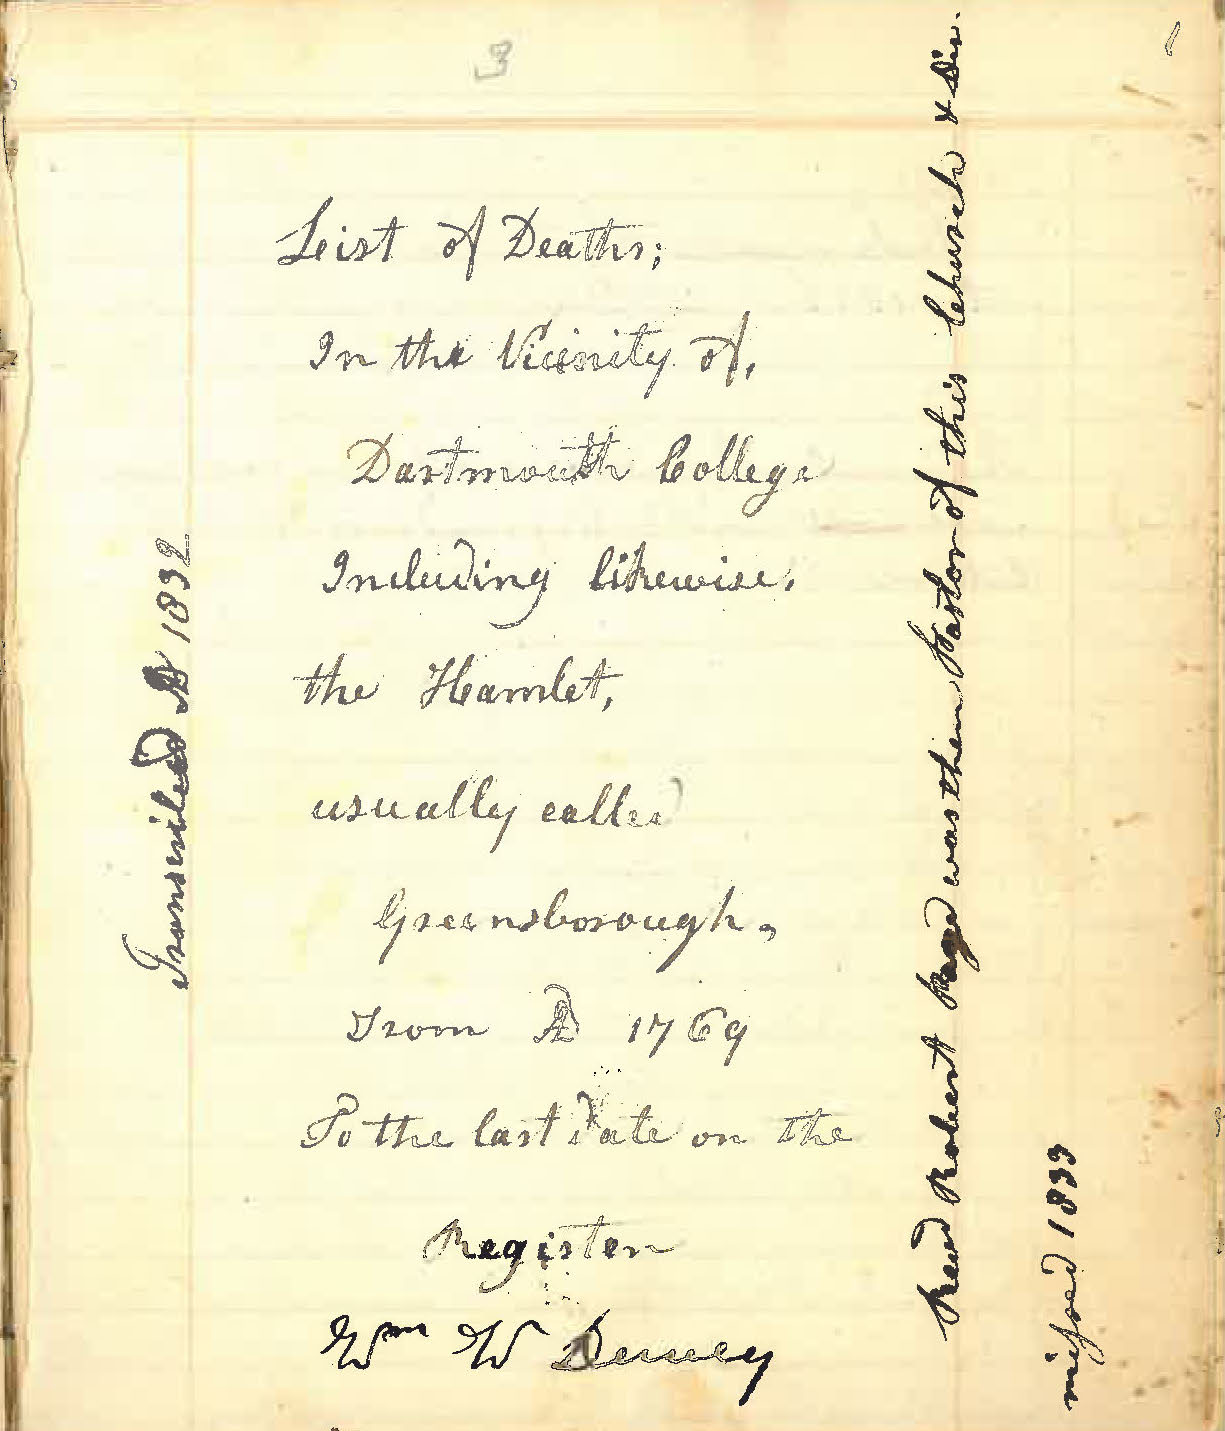 3
List of Deaths;
In the Vicinity of,
Dartmouth College
Including likewise,
the Hamlet,
usually called
Greensborough,
From AD 1769
To the last date on the
Register
Wm W Dewey
Transcribed AD 1832
Revd Robert Page was then Pastor of this Church & Dis.
missed 1833